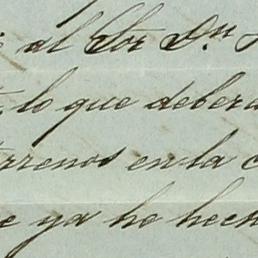 al Sor Dn
lo que deber
rrenos en la c
e ya he hech